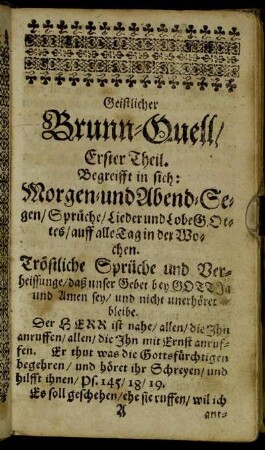 Geistlicher
Brunn-Quell/
Erster Theil.
Begreifft in sich:
Morgen-und Abend-Se-
gen/Sprüche/Lieder und Lobe GOt-
tes/auff alle Tag in der Wo-
chen.
Tröstliche Sprüche und Ver-
heissunge/daß unser Gebet bey GOTT Ja
und Amen sey/ und nicht unerhöret
bleibe.
Der HERR ist nahe/allen/die Jhn
anruffen/allen/die Jhn mit Ernst anruf-
fen. Er thut was die Gottsfürchtigen
begehren/ und höret ihr Schreyen/und
hilfft ihnen/Ps. 145/18/19.
Es soll geschehen/ehe sie ruffen/wil ich
A ant-